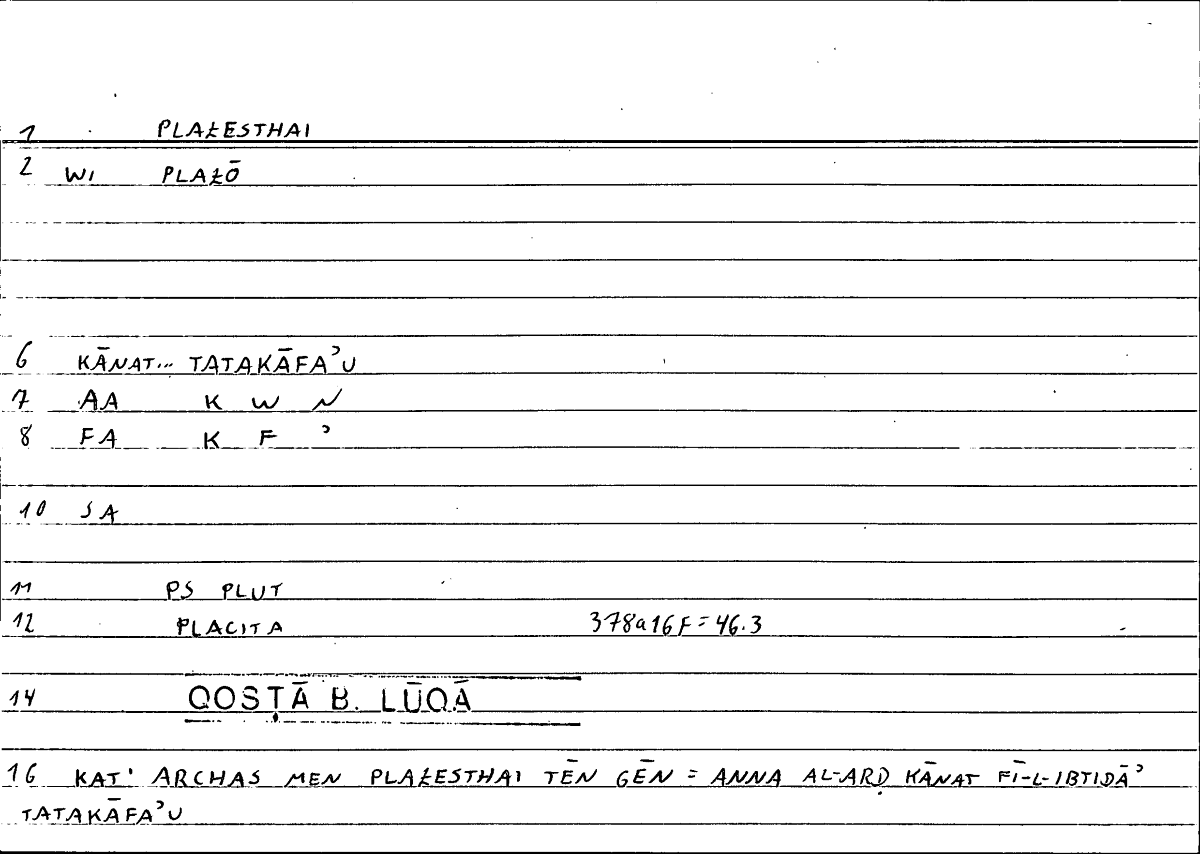 1 PLAŁESTHAI
2 WI PLAŁŌ
6 KĀNAT... TATAKĀFAʾU
7 AA K W N
8 FA K F ʾ
10 SA
11 PS PLUT
12 PLACITA 378a16F=46.3
14 QOSṬĀ B. LŪQĀ
16 KAT' ARCHAS MEN PLAŁESTHAI TĒN GĒN = ANNA AL-ARḌ KĀNAT FĪ-L-IBTIDĀʾ
TATAKĀFAʾU